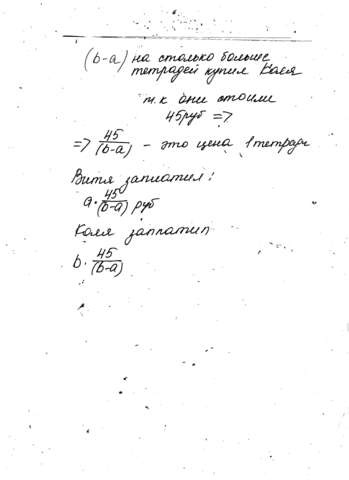 (b-a) на столько больше
тетрадей купил Коля
т.к они стоили
45руб =>
=> 45/(b-a) - это цена 1 тетради
Витя заплатил:
a · 45/(b-a) руб
Коля заплатил
b · 45/(b-a)